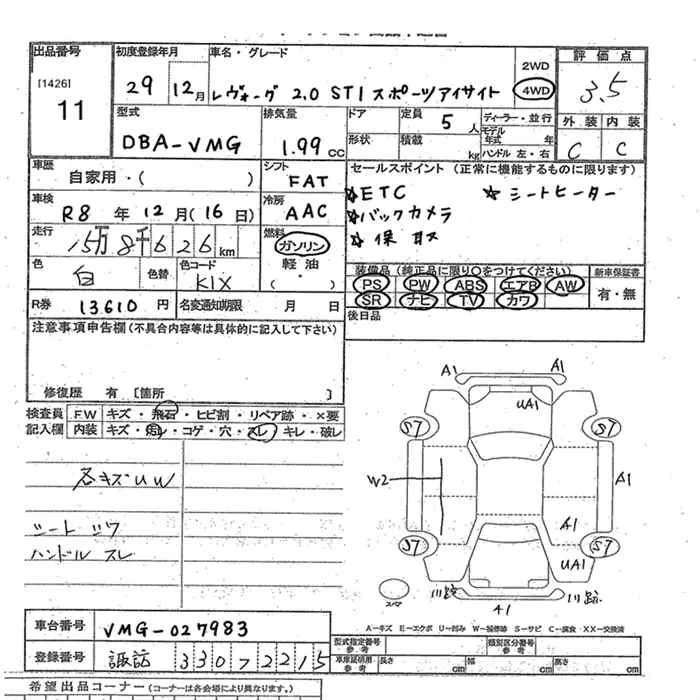 出品番号 初度登録年月 車名・グレード 評価点
[1426] 11
29 12月 レヴォーグ 2.0 STI スポーツアイサイト 2WD 4WD 3.5
型式 排気量 ドア 定員 ディーラー・並行 外装 内装
DBA-VMG 1.99 cc 5人 モデル年式 年 C C
形状 積載 kg ハンドル 左・右
車歴 シフト セールスポイント (正常に機能するものに限ります)
自家用・( ) FAT ☆ETC ☆シートヒーター
車検 冷房 ☆バックカメラ
R8年 12月(16日) AAC
走行 燃料
15万8千626km ガソリン
色 色替 色コード 軽油
白 KIX ・( )
装備品 (純正品に限り○をつけてください) 新車保証書
PS PW ABS エアB AW 有・無
SR ナビ TV カワ
R券 13610円 名変通知期限 月 日 後日品
注意事項申告欄(不具合内容等は具体的に記入して下さい)
修復歴 有 [箇所 ]
検査員 F.W キズ・飛石・ヒビ割・リペア跡・×要
記入欄 内装 キズ・・コゲ・穴・スレ・キレ・破レ
各キズUW
シート シワ
ハンドル スレ
A1 A1
UA1
S7 S7
W2 A1
A1
S7 S7
UA1
A1
A-キズ E-エクボ U-凹み W-補修跡 S-サビ C-腐食 XX-交換済
車台番号 VMG-027983
登録番号 諏訪 330 7 2215
型式指定番号 参考 類別区分番号 参考
車庫証明用 参考 長さ cm 幅 cm 高さ cm
希望出品コーナー(各会場により異なります。)